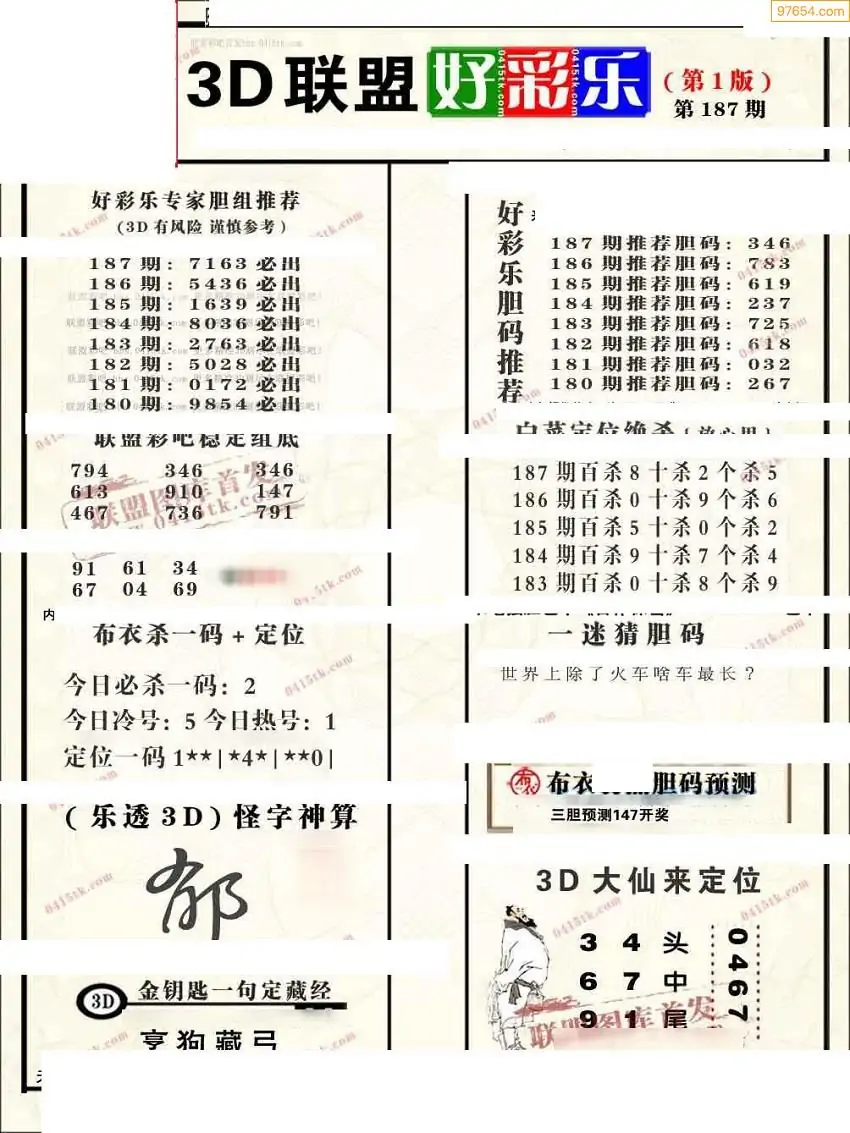 97654.com
3D联盟好彩乐(第1版)
第187期
好彩乐专家胆组推荐
(3D有风险 谨慎参考)
187期:7163必出
186期:5436必出
185期:1639必出
184期:8036必出
183期:2763必出
182期:5028必出
181期:0172必出
180期:9854必出
联盟彩吧稳定组底
794 346 346
613 910 147
467 736 791
91 61 34
67 04 69
内
布衣杀一码+定位
今日必杀一码:2
今日冷号:5 今日热号:1
定位一码1**|*4*|**0|
(乐透3D)怪字神算
郁
3D 金钥匙一句定藏经
烹狗藏弓
好彩乐胆码推荐
187期推荐胆码:346
186期推荐胆码:783
185期推荐胆码:619
184期推荐胆码:237
183期推荐胆码:725
182期推荐胆码:618
181期推荐胆码:032
180期推荐胆码:267
白菜定位绝杀
187期百杀8十杀2个杀5
186期百杀0十杀9个杀6
185期百杀5十杀0个杀2
184期百杀9十杀7个杀4
183期百杀0十杀8个杀9
一迷猜胆码
世界上除了火车啥车最长?
布衣 胆码预测
三胆预测147开奖
3D大仙来定位
3 4 头
6 7 中
9 1 尾
0467
联盟图库首发
0415tk.com